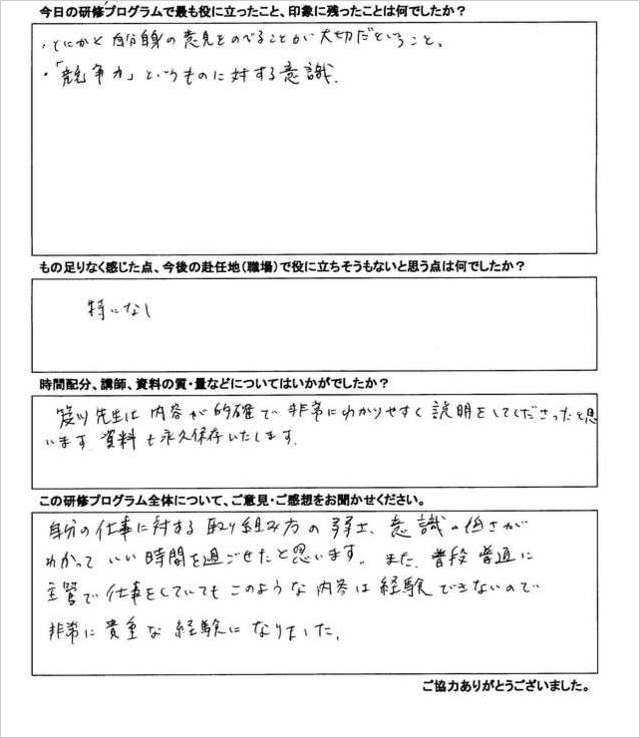 今日の研修プログラムで最も役に立ったこと、印象に残ったことは何でしたか？
・とにかく自分自身の意見をのべることが大切だということ。
・「競争力」というものに対する意識.
もの足りなく感じた点、今後の赴任地（職場）で役に立ちそうもないと思う点は何でしたか？
特になし
時間配分、講師、資料の質・量などについてはいかがでしたか？
先生は内容が的確で非常にわかりやすく説明をしてくださったと思
います. 資料も永久保存いたします.
この研修プログラム全体について、ご意見・ご感想をお聞かせください。
自分の仕事に対する取り組み方の弱さ、意識の低さが
わかっていい時間を過ごせたと思います。また、普段普通に
主管で仕事をしていてもこのような内容は経験できないので
非常に貴重な経験になりました.
ご協力ありがとうございました。